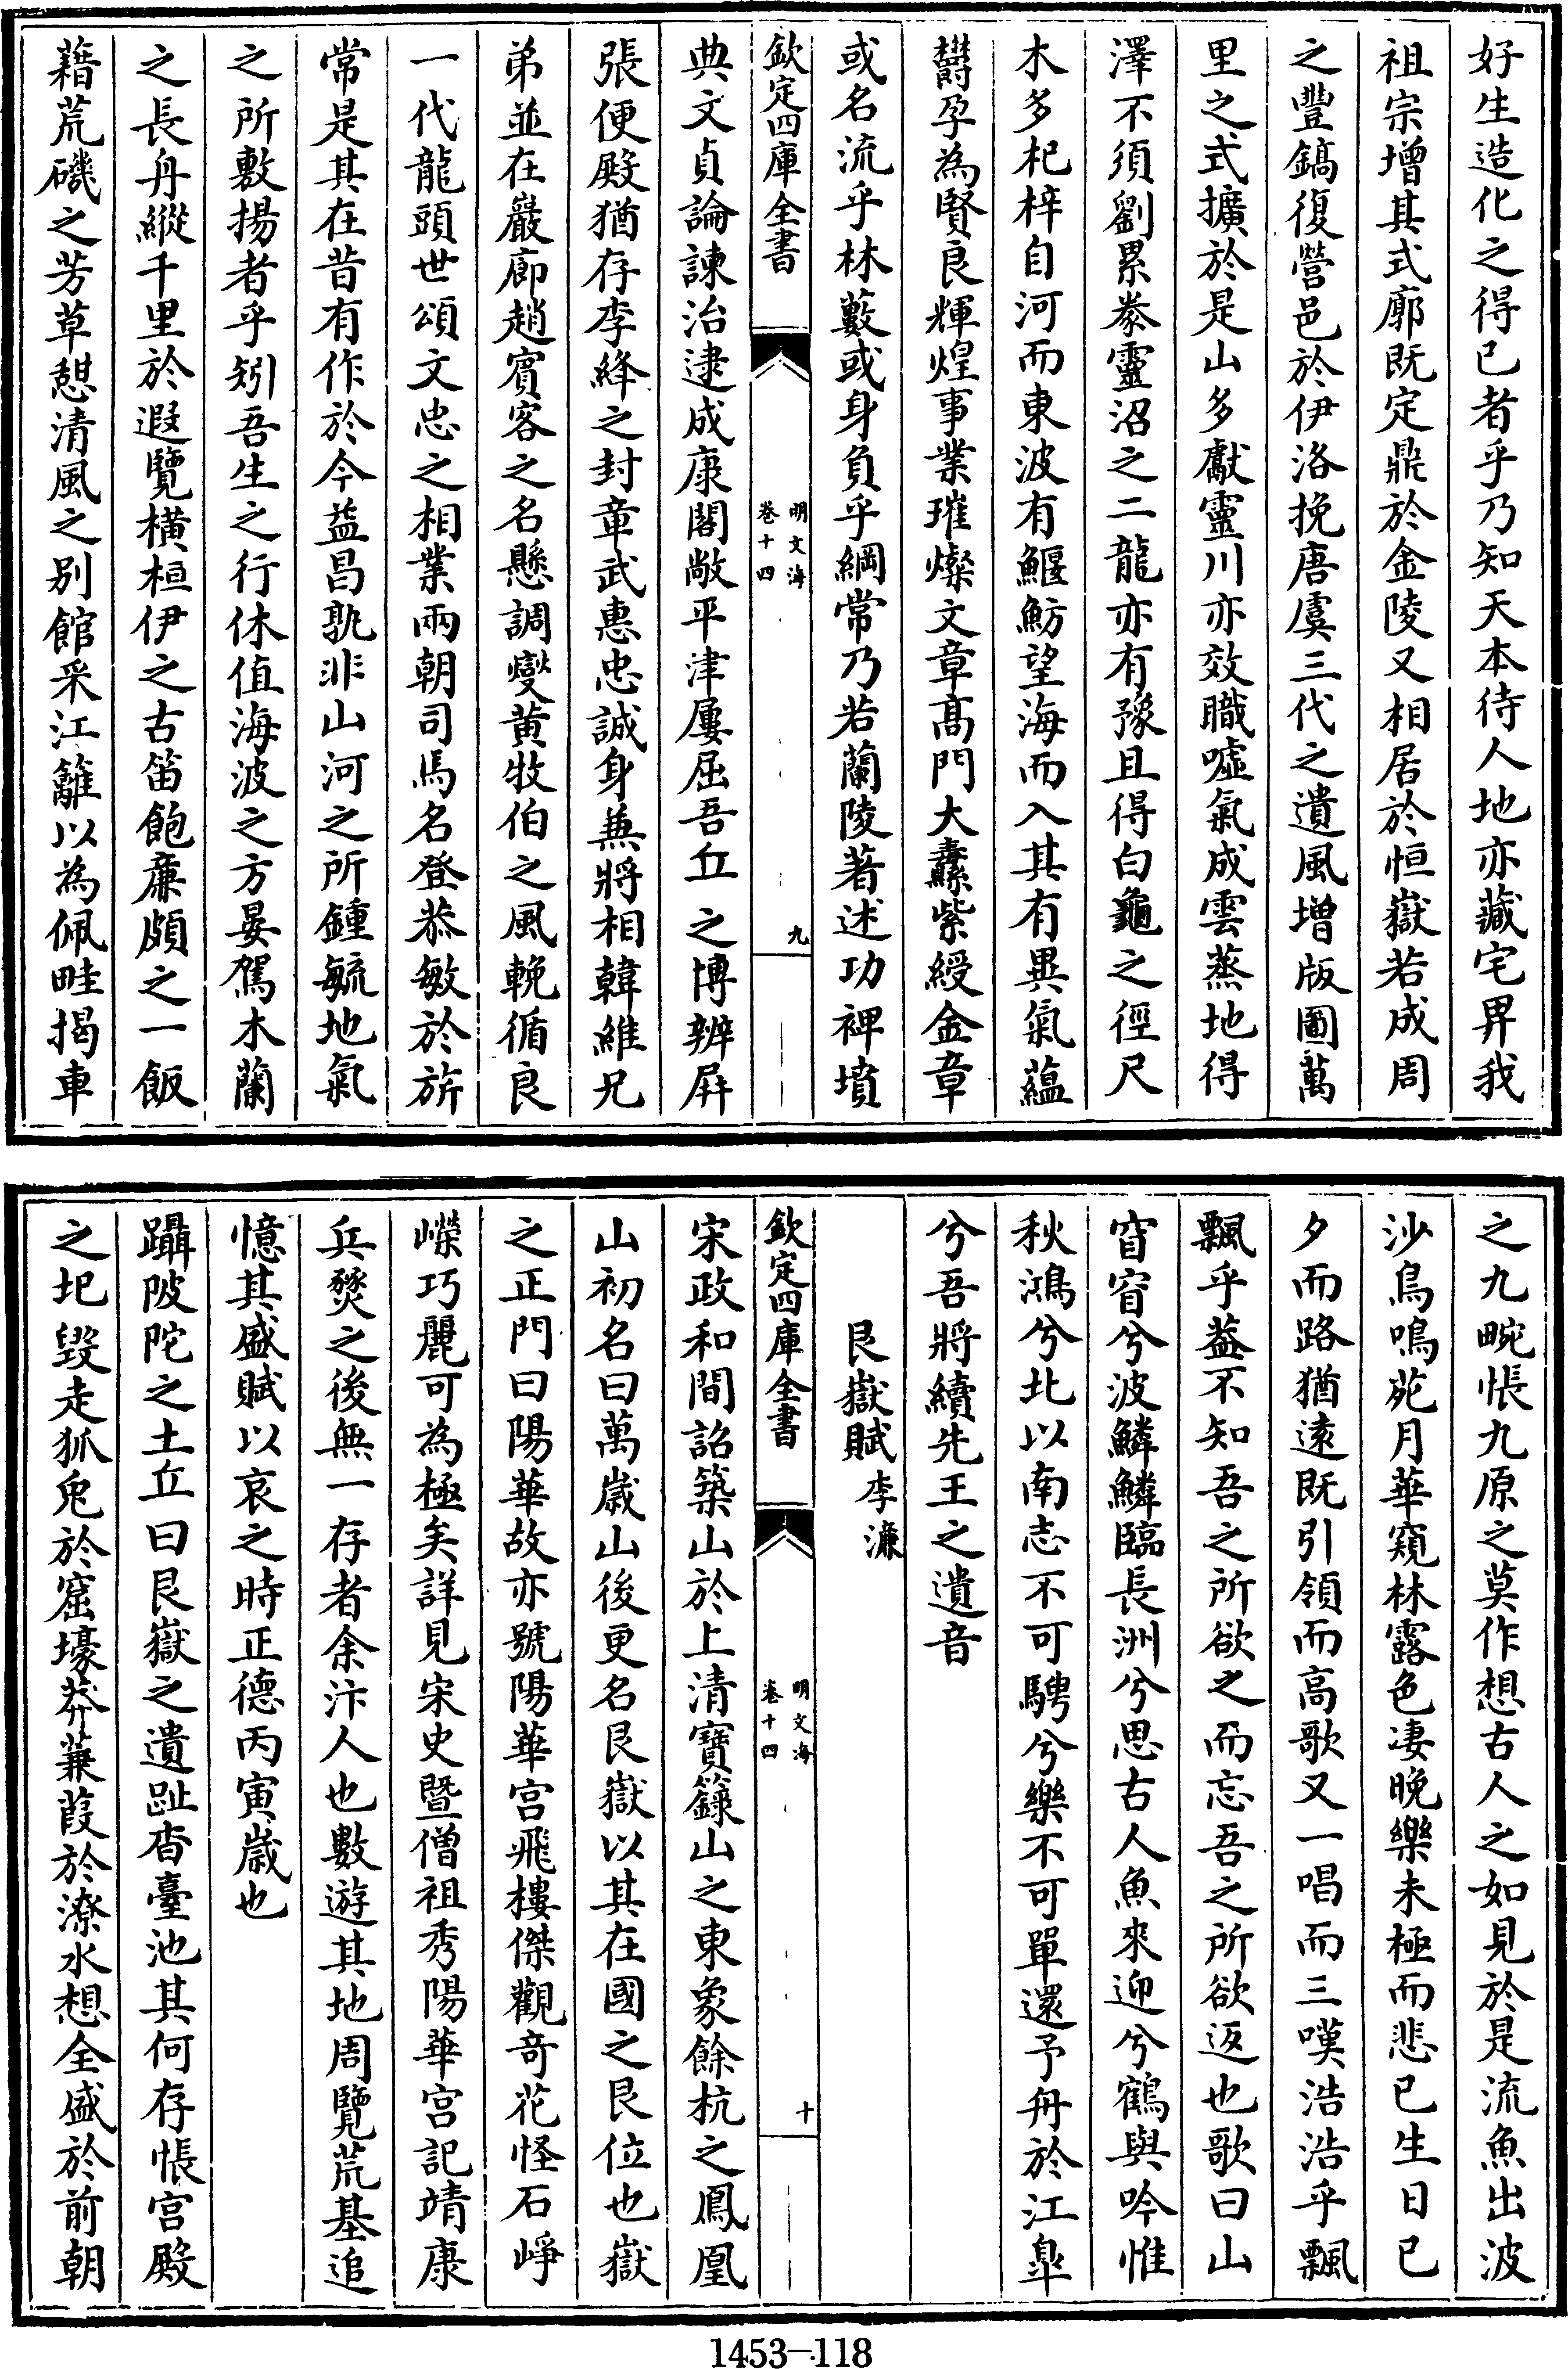 好生造化之得已者乎乃知天本待人地亦藏宅畀我
祖宗增其式廓既定鼎於金陵又相居於恒嶽若成周
之豐鎬復營邑於伊洛挽唐虞三代之遺風增版圖萬
里之式擴於是山多獻靈川亦效職噓氣成雲蒸地得
澤不須劉累豢靈沼之二龍亦有豫且得白龜之徑尺
木多杞梓自河而東波有鰋魴望海而入其有異氣蘊
欝孕為賢良輝煌事業璀燦文章髙門大纛紫綬金章
或名流乎林藪或身負乎綱常乃若蘭陵著述功裨墳
欽定四庫全書
明文海
卷十四
九
典文貞論諫治逮成康閣敞平津屢屈吾丘之博辨屛
張便殿猶存李絳之封章武惠忠誠身兼將相韓維兄
弟並在嚴廊趙賔客之名懸調燮黄牧伯之風輓循良
一代龍頭世頌文忠之相業兩朝司馬名登恭敏於旂
常是其在昔有作於今益昌孰非山河之所鍾毓地氣
之所敷揚者乎矧吾生之行休值海波之方晏駕木蘭
之長舟縱千里於遐覽横桓伊之古笛飽亷頗之一飯
藉荒磯之芳草憇清風之别館采江蘺以為佩畦揭車
之九畹悵九原之莫作想古人之如見於是流魚出波
沙鳥鳴苑月華窺林露色凄晚樂未極而悲已生日已
夕而路猶逺既引領而高歌又一唱而三嘆浩浩乎飄
飄乎葢不知吾之所欲之而忘吾之所欲返也歌曰山
窅窅兮波鱗鱗臨長洲兮思古人魚來迎兮鶴與吟惟
秋鴻兮北以南志不可騁兮樂不可單還予舟於江臯
兮吾將續先王之遺音
艮嶽賦 李濂
欽定四庫全書
明文海
卷十四
十
宋政和間詔築山於上清寶籙山之東象餘杭之鳳凰
山初名曰萬嵗山後更名艮嶽以其在國之艮位也嶽
之正門曰陽華故亦號陽華宫飛樓傑觀奇花怪石崢
嶸巧麗可為極矣詳見宋史暨僧祖秀陽華宫記靖康
兵燹之後無一存者余汴人也數遊其地周覽荒基追
憶其盛賦以哀之時正德丙寅嵗也
躡陂陀之土丘曰艮嶽之遺趾杳臺池其何存悵宫殿
之圯毀走狐兎於窟壕莽蒹葭於潦水想全盛於前朝
1453-118